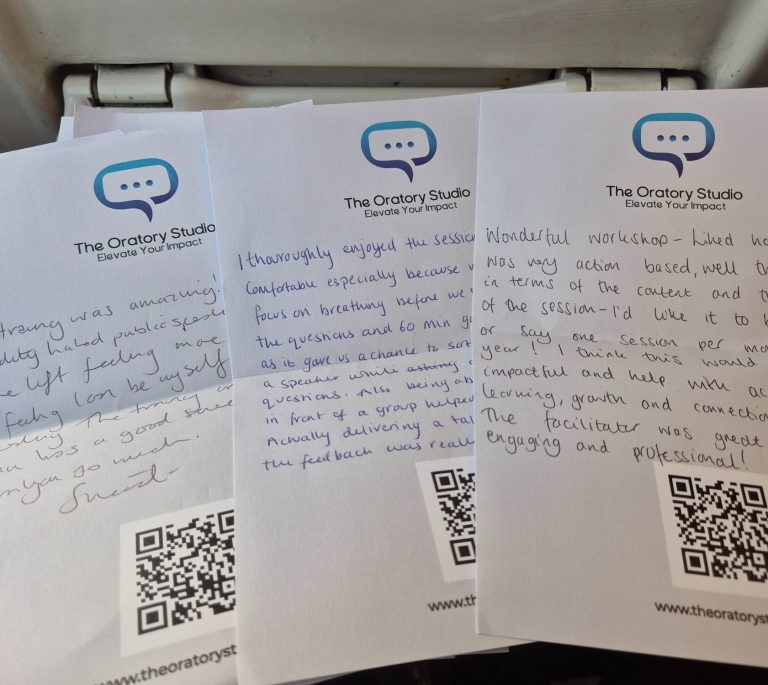 The Oratory Studio
Elevate Your Impact
training was amazing!
hated public speak
left feeling more
feeling I can be myself
The training
has a good sense
you so much.
www.theoratoryst
The Oratory Studio
Elevate Your Impact
I thoroughly enjoyed the session
comfortable especially because
focus on breathing before we
the questions and 60 min
as it gave us a chance to
a speaker while
questions. Also being ab
in front of a group helped
Actually delivering a tal
the feedback was reall
www.th
The Oratory Studio
Elevate Your Impact
Wonderful workshop - Liked ho
was very action based, well th
in terms of the content and t
of the session - I'd like it to
or say one session per mo
year! I think this would
impactful and help with ac
learning, growth and connection
The facilitator was great
engaging and professional!
www.theoratoryst